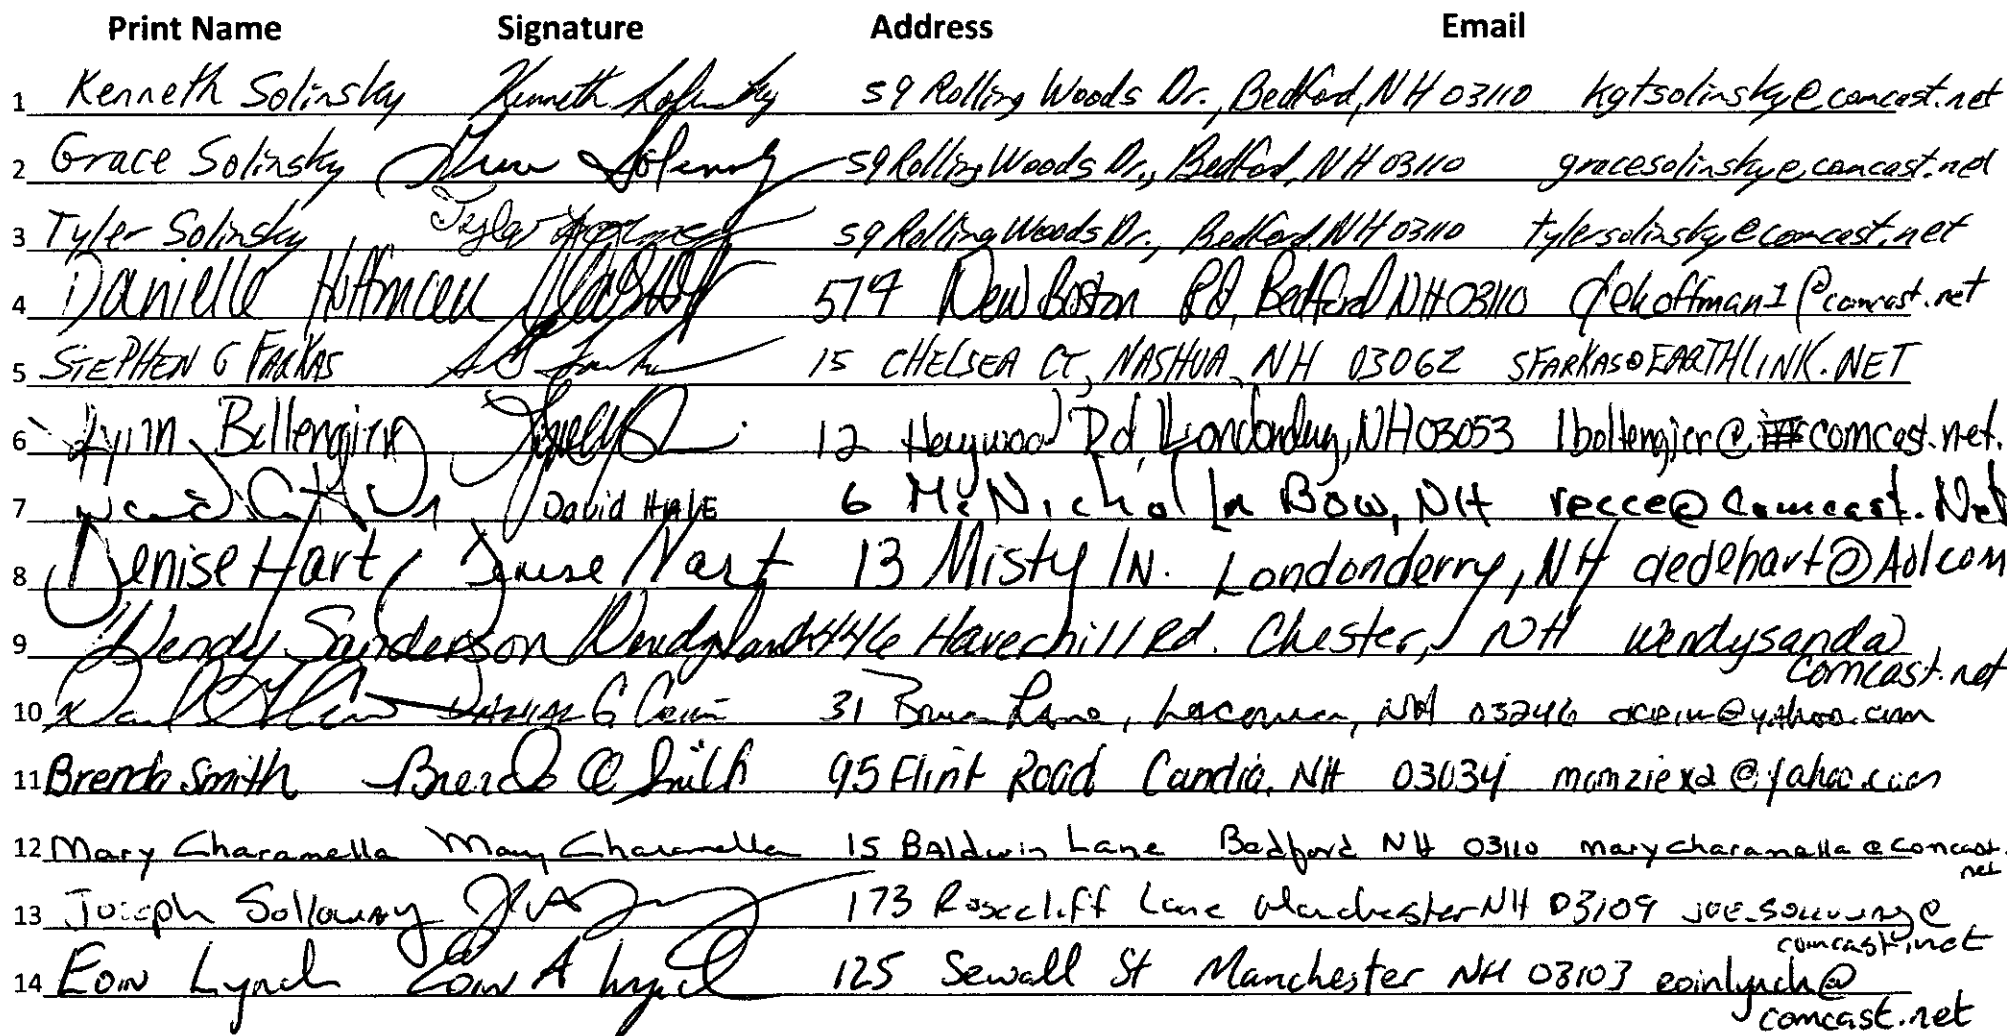 Print Name Signature Address Email
1 Kenneth Solinsky Kenneth Solinsky 59 Rolling Woods Dr., Bedford, NH 03110 kgtsolinsky@comcast.net
2 Grace Solinsky Grace Solinsky 59 Rolling Woods Dr., Bedford, NH 03110 gracesolinsky@comcast.net
3 Tyler Solinsky Tyler Solinsky 59 Rolling Woods Dr., Bedford, NH 03110 tylersolinsky@comcast.net
4 Danielle Hoffman 574 New Boston Rd, Bedford NH 03110 dehoffman1@comcast.net
5 STEPHEN G FARKAS 15 CHELSEA CT, NASHUA, NH 03062 SFARKAS@EARTHLINK.NET
6 Lynn Bollengier 12 Heywood Rd, Londonderry, NH 03053 lbollengier@comcast.net.
7 David HALE 6 McNichol Ln Bow, NH recce@Comcast.Net
8 Denise Hart Denise Hart 13 Misty ln. Londonderry, NH dedehart@Aol.com
9 Wendy Sanderson 446 Haverhill Rd. Chester, NH wendysand@
comcast.net
10 31 Lane, Laconia, NH 03246 @yahoo.com
11 Brenda Smith Brenda Smith 95 Flint Road Candia, NH 03034 momziex2@yahoo.com
12 Mary Charamella Mary Charamella 15 BAldwin Lane Bedford NH 03110 marycharamella@comcast.
net
13 Joseph Solloway 173 Rosecliff Lane Manchester NH 03109 JOE_SOLLOWAY@
comcast.net
14 Eoin Lynch Eoin A Lynch 125 Sewall St Manchester NH 03103 eoinlynch@
comcast.net